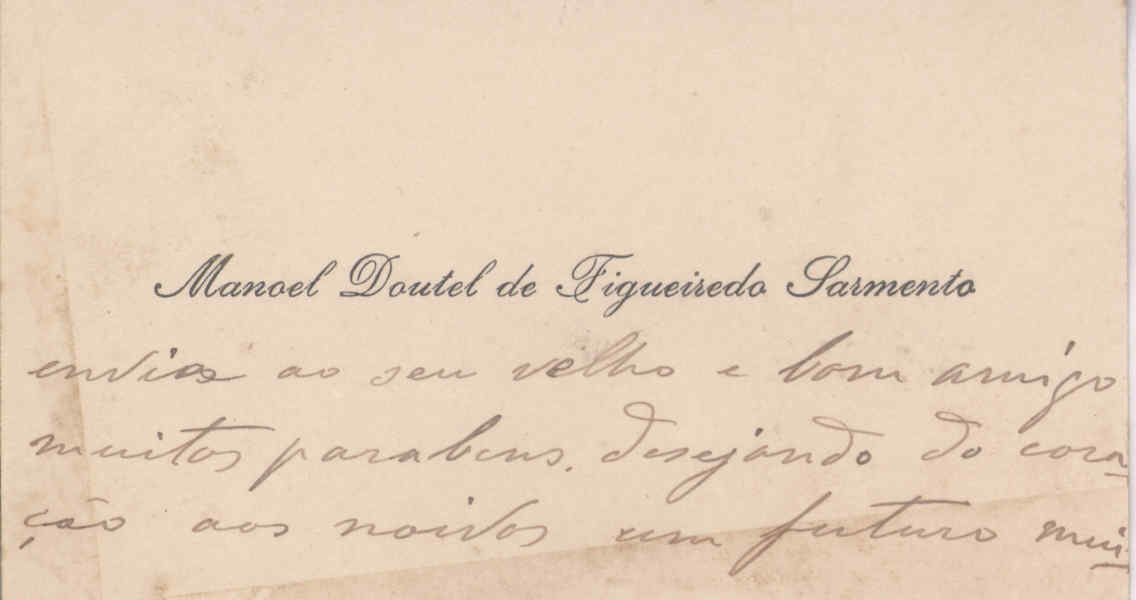 Manoel Doutel de Figueiredo Sarmento
envia ao seu velho e bom amigo
muitos parabens, desejando do cora-
ção aos noivos um futuro mui-